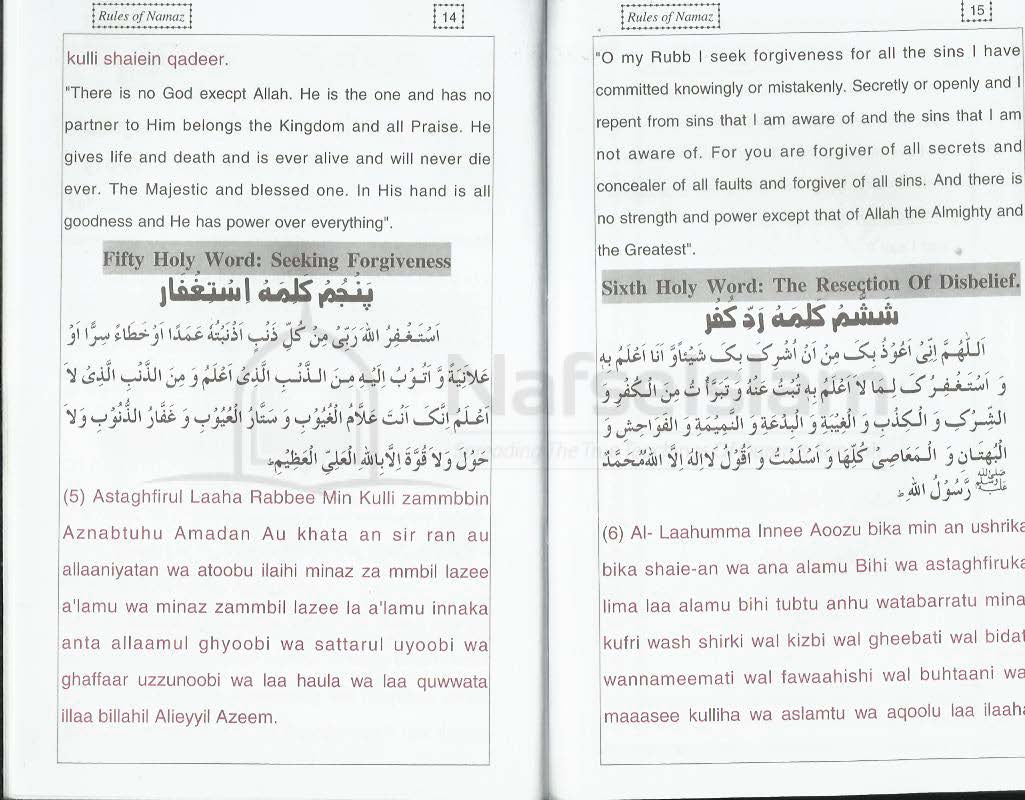 Rules of Namaz
14
kulli shaiein qadeer.
"There is no God execpt Allah. He is the one and has no
partner to Him belongs the Kingdom and all Praise. He
gives life and death and is ever alive and will never die
ever. The Majestic and blessed one. In His hand is all
goodness and He has power over everything".
Fifty Holy Word: Seeking Forgiveness
پَنْجُمْ كَلِمَهْ اِسْتِغْفَار
اَسْتَغْفِرُ اللهَ رَبِّىْ مِنْ كُلِّ ذَنْۢبٍ اَذْنَبْتُهٗ عَمَدًا اَوْ خَطَاءً سِرًّا اَوْ
عَلَانِيَةً وَّ اَتُوْبُ اِلَيْهِ مِنَ الذَّنْۢبِ الَّذِىْ اَعْلَمُ وَ مِنَ الذَّنْۢبِ الَّذِىْ لَا
اَعْلَمُ اِنَّكَ اَنْتَ عَلَّامُ الْغُيُوْبِ وَ سَتَّارُ الْعُيُوْبِ وَ غَفَّارُ الذُّنُوْبِ وَلَا
حَوْلَ وَلَا قُوَّةَ اِلَّا بِاللهِ الْعَلِىِّ الْعَظِيْمِ ؕ
(5) Astaghfirul Laaha Rabbee Min Kulli zammbbin
Aznabtuhu Amadan Au khata an sir ran au
allaaniyatan wa atoobu ilaihi minaz za mmbil lazee
a'lamu wa minaz zammbil lazee la a'lamu innaka
anta allaamul ghyoobi wa sattarul uyoobi wa
ghaffaar uzzunoobi wa laa haula wa laa quwwata
illaa billahil Alieyyil Azeem.
Rules of Namaz
15
"O my Rubb I seek forgiveness for all the sins I have
committed knowingly or mistakenly. Secretly or openly and I
repent from sins that I am aware of and the sins that I am
not aware of. For you are forgiver of all secrets and
concealer of all faults and forgiver of all sins. And there is
no strength and power except that of Allah the Almighty and
the Greatest".
Sixth Holy Word: The Resection Of Disbelief.
شَشُمْ كَلِمَهْ رَدِّ كُفُر
اَللّٰهُمَّ اِنِّىْ اَعُوْذُ بِكَ مِنْ اَنْ اُشْرِكَ بِكَ شَيْئًا وَّ اَنَا اَعْلَمُ بِهٖ
وَ اَسْتَغْفِرُكَ لِمَا لَا اَعْلَمُ بِهٖ تُبْتُ عَنْهُ وَ تَبَرَّأْتُ مِنَ الْكُفْرِ وَ
الشِّرْكِ وَ الْكِذْبِ وَ الْغِيْبَةِ وَ الْبِدْعَةِ وَ النَّمِيْمَةِ وَ الْفَوَاحِشِ وَ
الْبُهْتَانِ وَ الْمَعَاصِىْ كُلِّهَا وَ اَسْلَمْتُ وَ اَقُوْلُ لَا اِلٰهَ اِلَّا اللهُ مُحَمَّدٌ
رَّسُوْلُ اللهِ ؕ ﷺ
(6) Al- Laahumma Innee Aoozu bika min an ushrika
bika shaie-an wa ana alamu Bihi wa astaghfiruka
lima laa alamu bihi tubtu anhu watabarratu mina
kufri wash shirki wal kizbi wal gheebati wal bidat
wannameemati wal fawaahishi wal buhtaani wa
maaasee kulliha wa aslamtu wa aqoolu laa ilaaha
NafseIslam